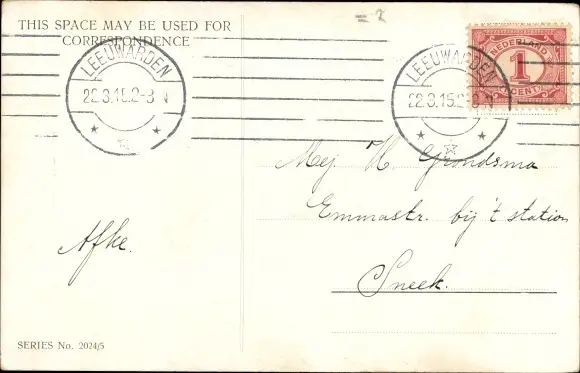 THIS SPACE MAY BE USED FOR
CORRESPONDENCE
LEEUWARDEN
22.3.15.2-3 N
LEEUWARDEN
22.3.15.2-3 N
NEDERLAND
1
CENT
Mej. H. Grondsma
Emmastr. bij 't station
Sneek.
Afke.
SERIES No. 2024/5